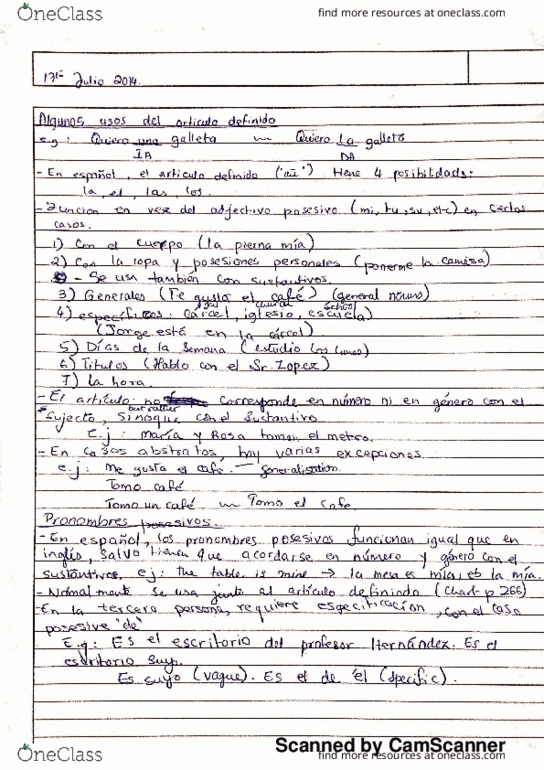 OneClass
find more resources at oneclass.com
17 Julio 2014.
Algunos usos del articulo definido
e.g: Quiero una galleta Quiero la galleta
IA DA
- En español, el articulo definido tiene 4 posibilidads:
la, el, las, los.
- Funcion en vez del adjectivo posesivo (mi, tu, su, etc) en ciertos
casos.
1) Con el cuerpo (la pierna mía)
2) Con la ropa y posesiones personales (ponerme la camisa)
- Se usa también con sustantivos.
3) Generales (Te gusta el café) (general nouns)
school
4) especificos: Cárcel, iglesia, escuela)
(Jorge está en la cárcel)
5) Días de la semana (estudio los lunes)
6) Titulos (Hablo con el Sr. Lopez)
7) La hora
- El artículo: no corresponde en número ni en género con el
but rather
Sujecto, sinoque con el sustantivo
e.j: María y Rosa toman el metro.
- En casos abstratos, hay varias excepciones.
e.j: Me gusta el café. Generalisation.
Tomo café
Tomo un café Tomo el cafe
Pronombres posesivos.
- En español, los pronombres posesivos funcionan igual que en
inglés, salvo tienen que acordarse en número y género con el
sustantivos. e.j: the table is mine → la mesa es mía; es la mía.
- Normalmente se usa junto al artículo definindo (chart p 266)
- En la tercera persona, requiere especificación, con el caso
posesive 'de'
E.g: Es el escritorio del profesor Hernández. Es el
escritorio suyo.
Es suyo (vague). Es el de él (specific).
Scanned by CamScanner
OneClass
find more resources at oneclass.com